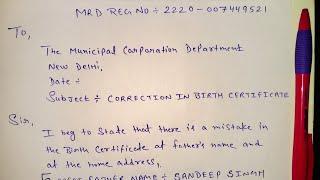 MRD REG NO ÷ 2220-007449521
To,
The Municipal Corporation Department
New Delhi,
Date ÷
Subject ÷ CORRECTION IN BIRTH CERTIFICATE
Sir,
I beg to state that there is a mistake in
the Birth Certificate at father's name and
at the home address,
FATHER NAME ÷ SANDEEP SINGH